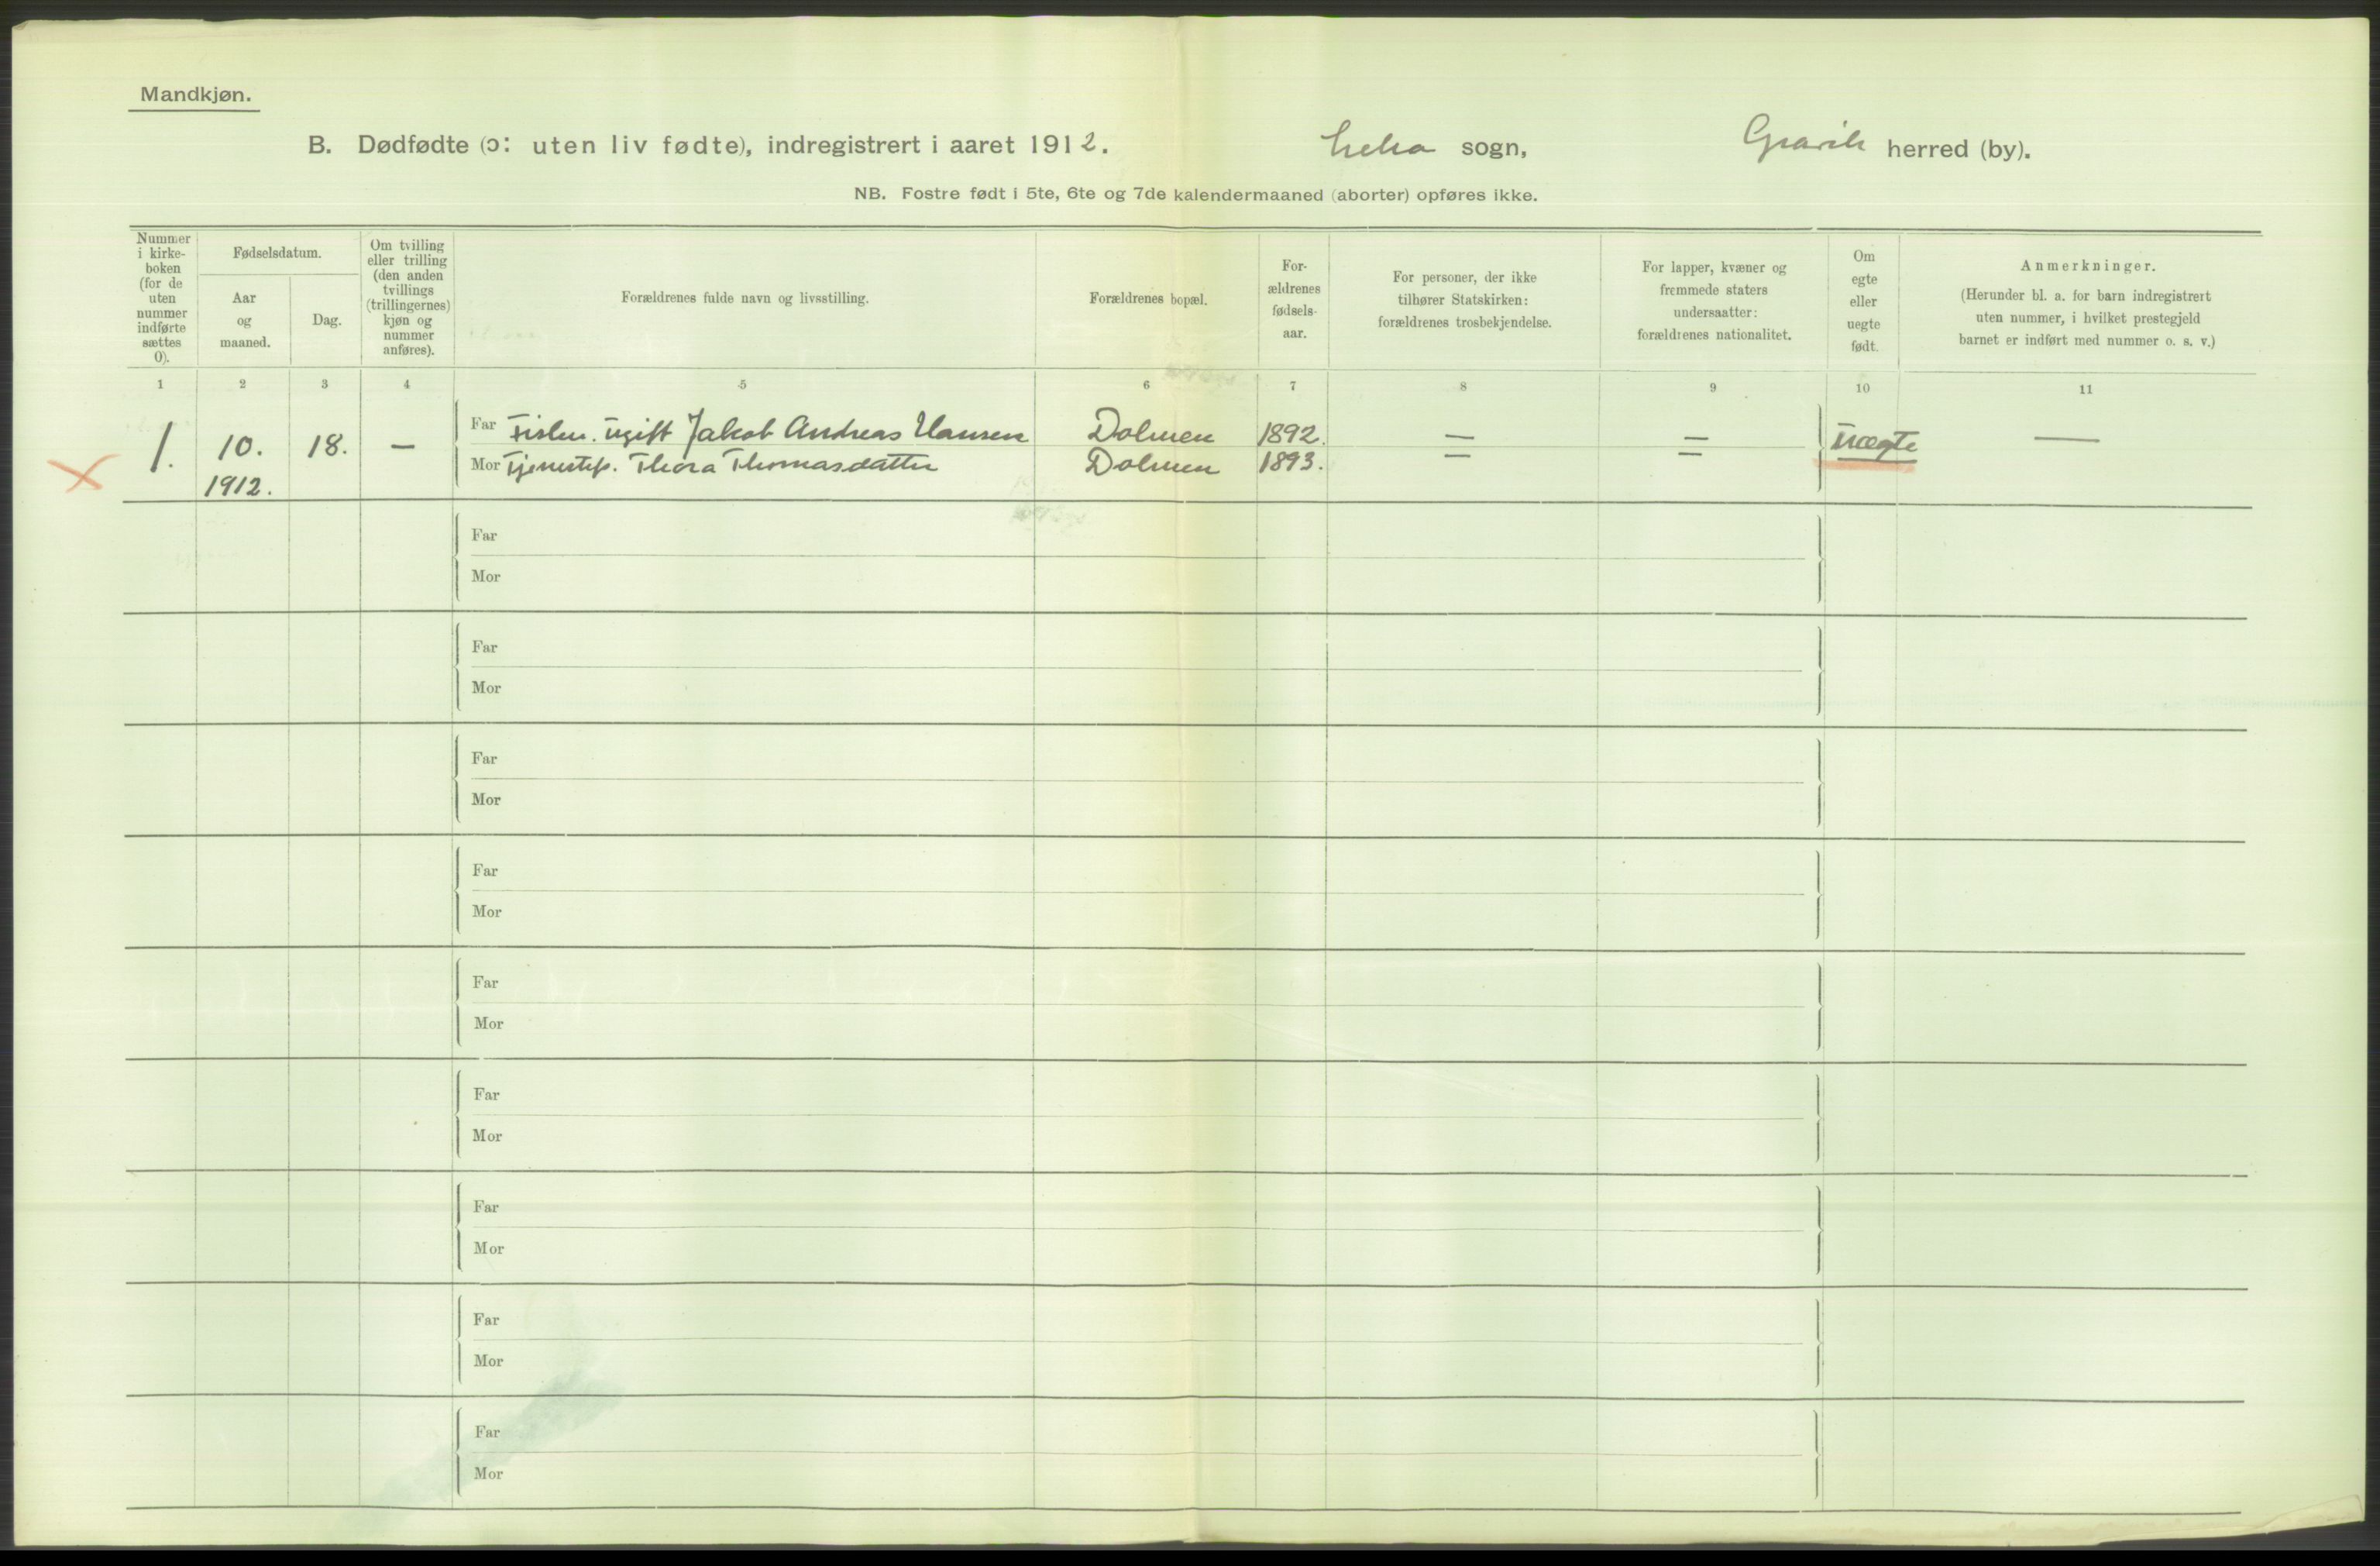 Mandkjøn.
B. Dødfødte (ɔ: uten liv fødte), indregistrert i aaret 1912. Leka sogn, Gravik herred (by).
NB. Fostre født i 5te, 6te og 7de kalendermaaned (aborter) opføres ikke.
Nummer i kirke-boken (for de uten nummer indførte sættes 0).
Fødselsdatum.
Aar og maaned.
Dag.
Om tvilling eller trilling (den anden tvillings (trillingernes) kjøn og nummer anføres).
Forældrenes fulde navn og livsstilling.
Forældrenes bopæl.
For-ældrenes fødsels-aar.
For personer, der ikke tilhører Statskirken: forældrenes trosbekjendelse.
For lapper, kvæner og fremmede staters undersaatter: forældrenes nationalitet.
Om egte eller uegte født.
Anmerkninger.
(Herunder bl. a. for barn indregistrert uten nummer, i hvilket prestegjeld barnet er indført med nummer o. s. v.)
1 2 3 4 5 6 7 8 9 10 11
1. 10. 18. — Far Fisker. ugift Jakob Andreas Hansen Dolmen 1892. — — Uægte —
1912. Mor Tjenestep. Thora Thomasdatter Dolmen 1893. — —
Far
Mor
Far
Mor
Far
Mor
Far
Mor
Far
Mor
Far
Mor
Far
Mor
Far
Mor
Far
Mor